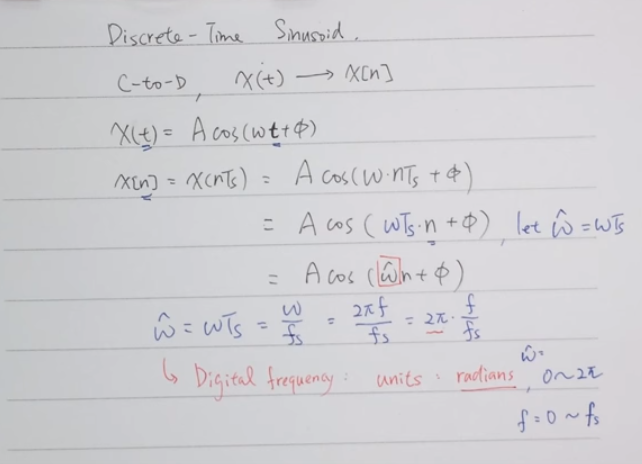 Discrete-Time Sinusoid.
C-to-D, x(t) → x[n]
x(t) = A cos(ωt+φ)
x[n] = x(nTs) = A cos(ω·nTs + φ)
= A cos (ωTs·n + φ), let ω̂ = ωTs
= A cos (ω̂n + φ)
ω̂ = ωTs = ω/fs = 2πf/fs = 2π · f/fs
↳ Digital frequency: units: radians, ω̂: 0~2π
f = 0 ~ fs